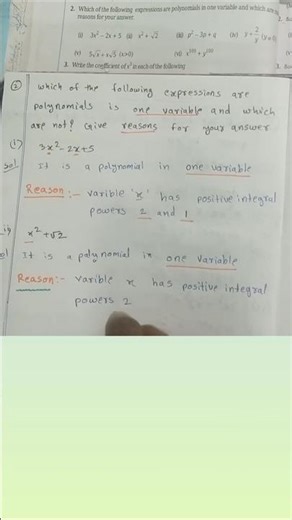 2. Which of the following expressions are polynomials in one variable and which are
reasons for your answer.
(i) 3x² - 2x + 5 (ii) x² + √2 (iii) p² - 3p + q (iv) y + 2/y (y ≠ 0)
(v) 5√x + x√5 (x>0) (vi) x¹⁰⁰ + y¹⁰⁰
3. Write the coefficient of x³ in each of the following
② which of the following expressions are
polynomials is one variable and which
are not? Give reasons for your answer
(i) 3x² - 2x+5
sol It is a polynomial in one variable
Reason :- varible 'x' has positive integral
powers 2 and 1
x² + √2
It is a polynomial in one variable
Reason :- varible x has positive integral
powers 2